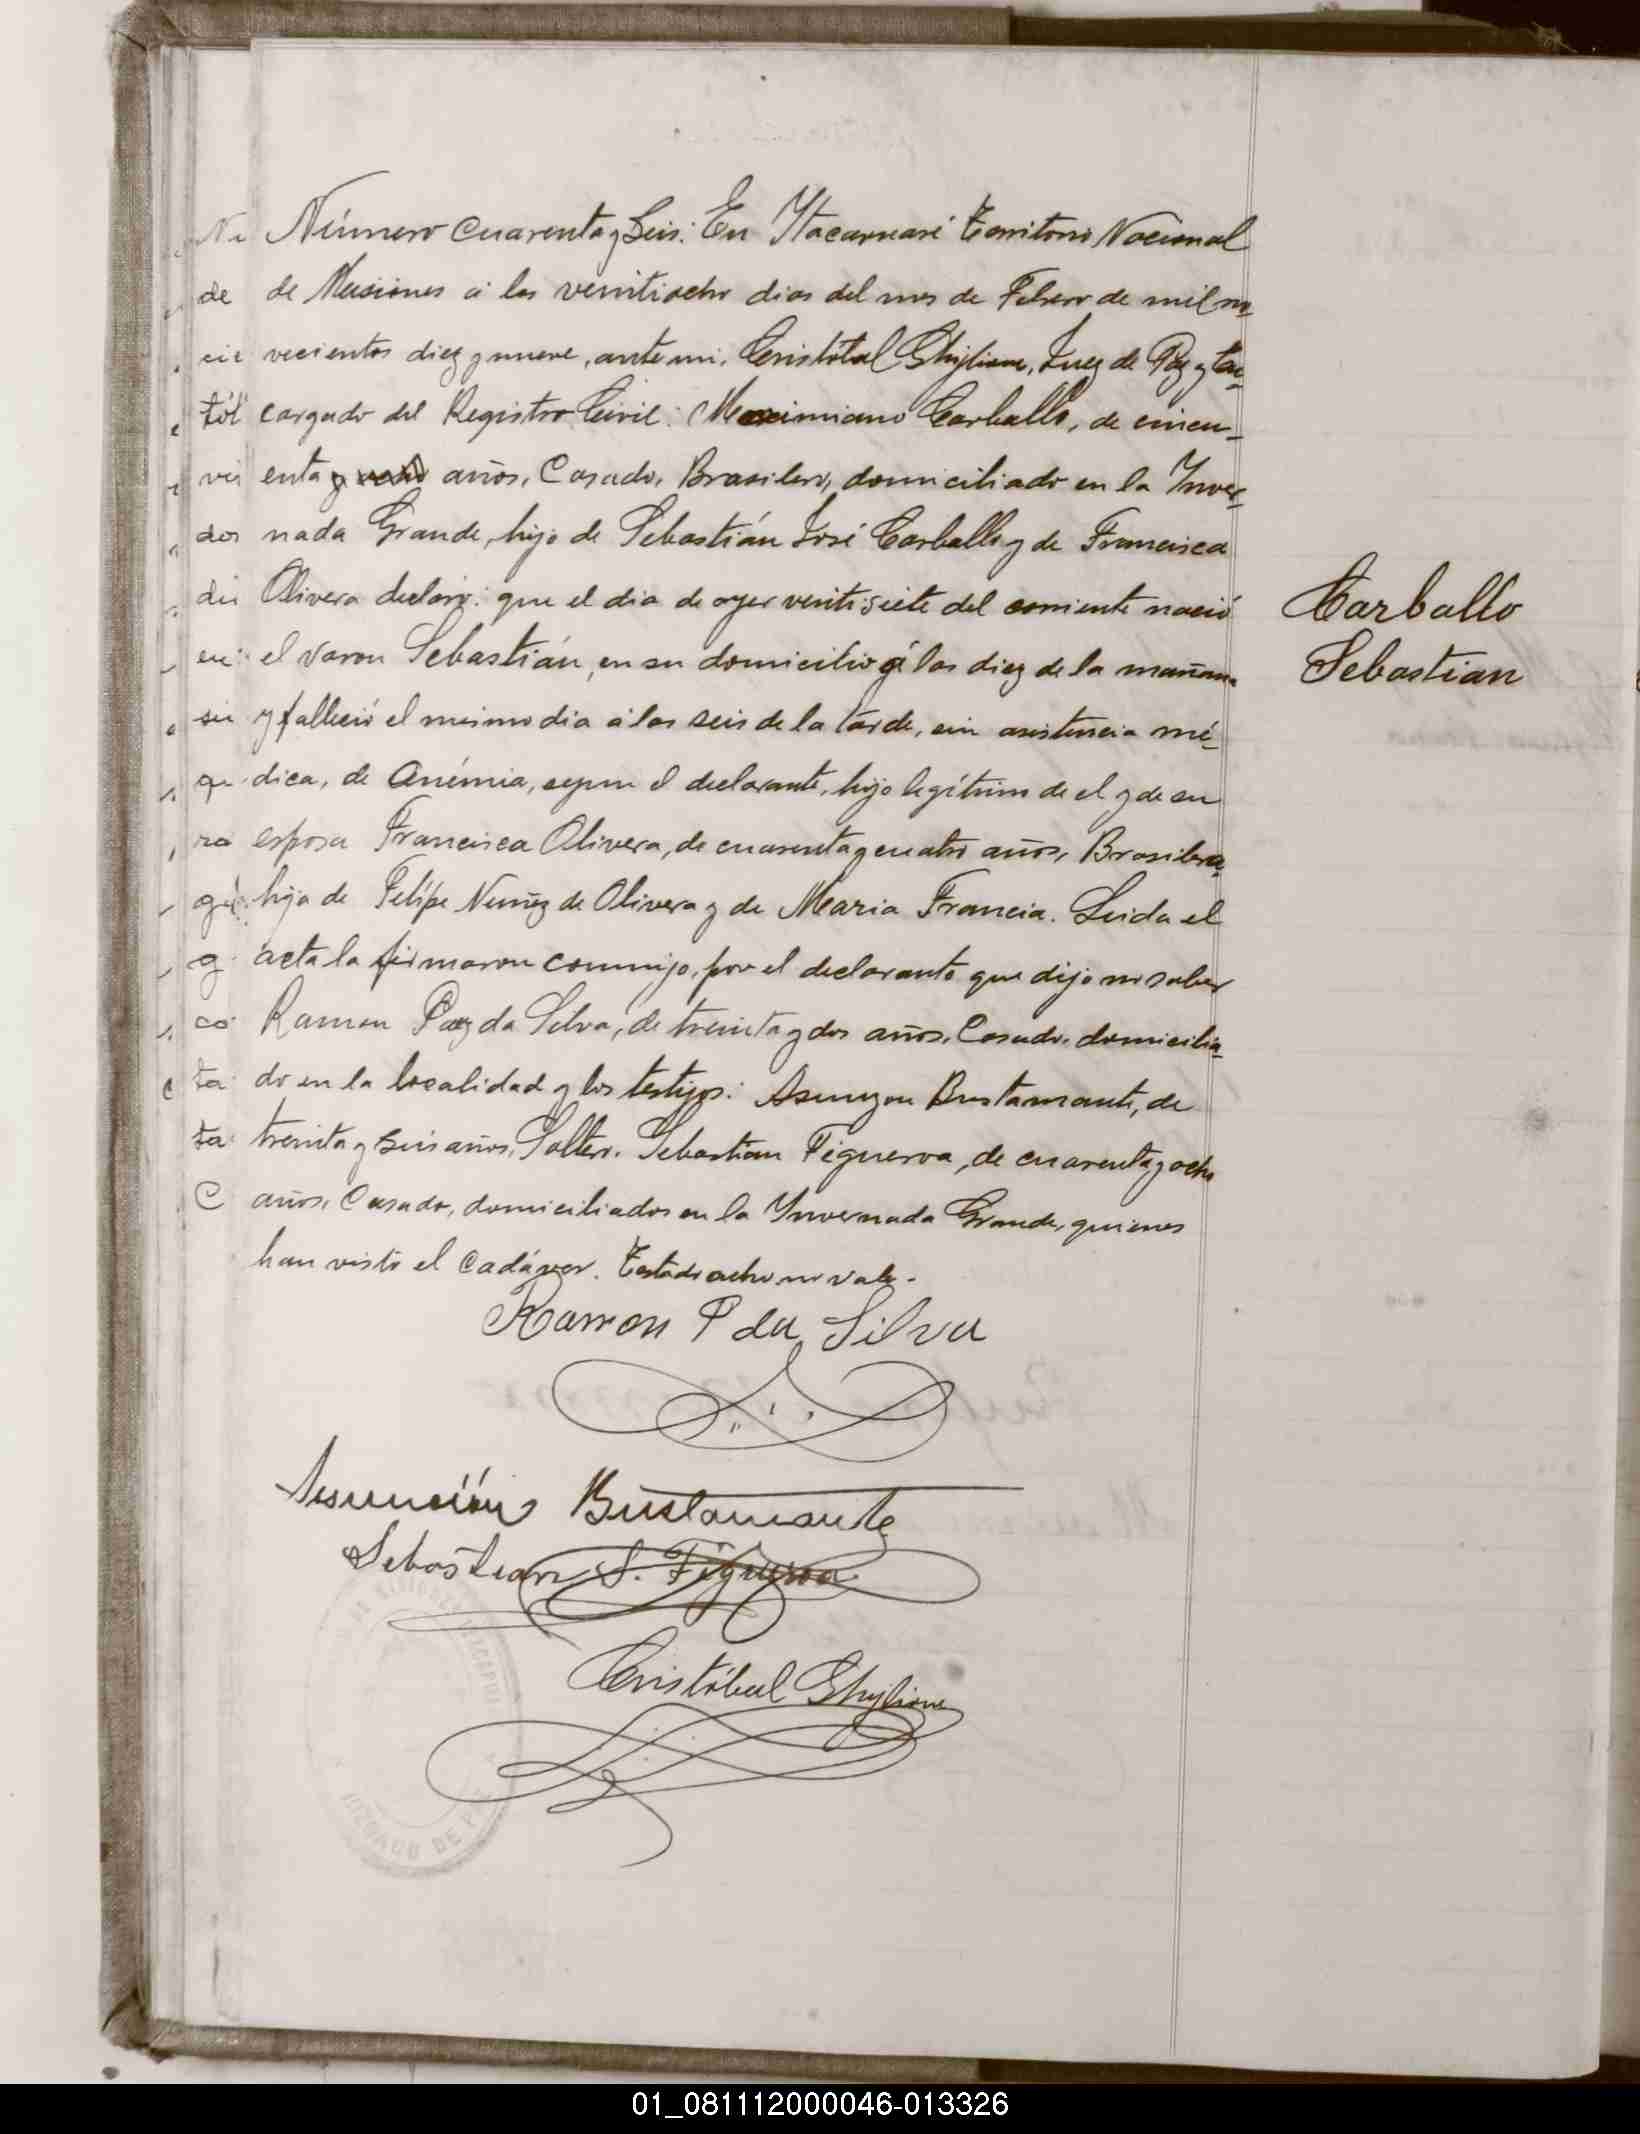 Número cuarenta y Seis: En Ytacaruaré Territorio Nacional
de Misiones á los veintiocho dias del mes de Febrero de mil no-
vecientos diez y nueve, ante mi, Cristóbal Ghiglione, Juez de Paz y En-
cargado del Registro Civil: Maximiano Carballo, de cincu-
enta y ocho años, Casado, Brasilero, domiciliado en la Inver-
nada Grande, hijo de Sebastián José Carballo y de Francisca
Olivera declaró: que el dia de ayer ventisiete del corriente nació
el varon Sebastián, en su domicilio á las diez de la mañana
y falleció el mismo dia á las seis de la tarde, sin asistencia mé-
dica, de Anémia, segun el declarante, hijo legítimo de el y de su
esposa Francisca Olivera, de cuarenta y cuatro años, Brasilera,
hija de Felipe Nuñez de Olivera y de Maria Francia. Leida el
acta la firmaron conmigo, por el declarante que dijo no saber
Ramon Paz da Silva, de treinta y dos años, Casado, domicilia-
do en la localidad y los testigos: Asunzon Bustamante, de
treinta y seis años, Soltero. Sebastian Figueroa, de cuarenta y ocho
años, Casado, domiciliados en la Ynvernada Grande, quienes
han visto el Cadáver. Testado ocho no vale.
Carballo
Sebastian
Ramon P da Silva
Asunción Bustamante
Sebastian S. Figueroa
Cristóbal Ghiglione
JUZGADO DE P
01_081112000046-013326